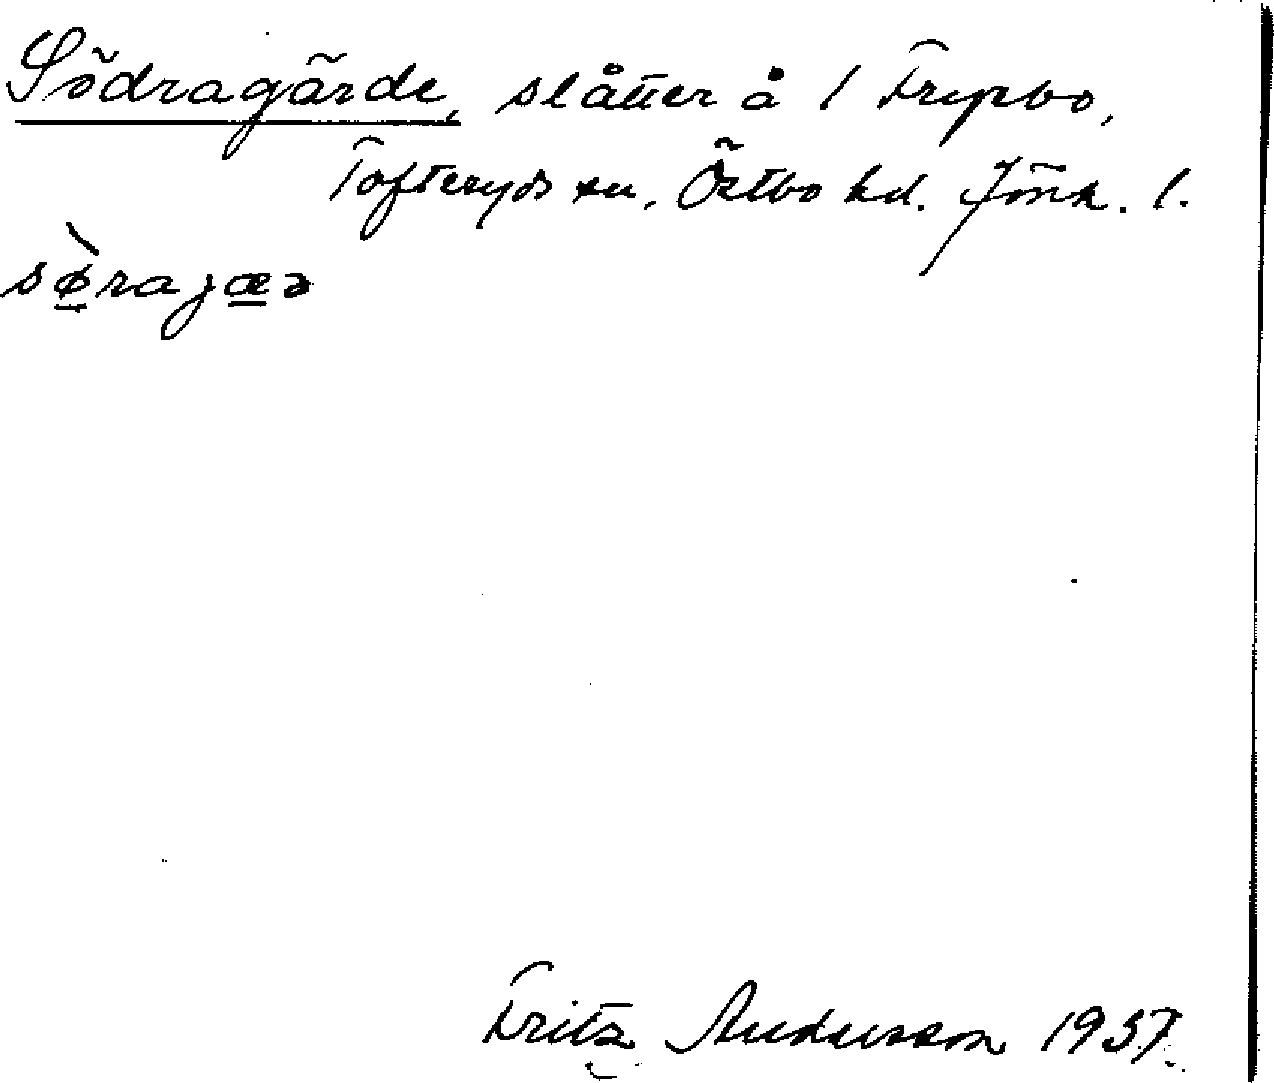 Södragärde, slåtter å / Frypbo,
Tofteryds sn, Östbo hd. Jönk. l.
sø̀rajæə
Fritz Andersson 1937.